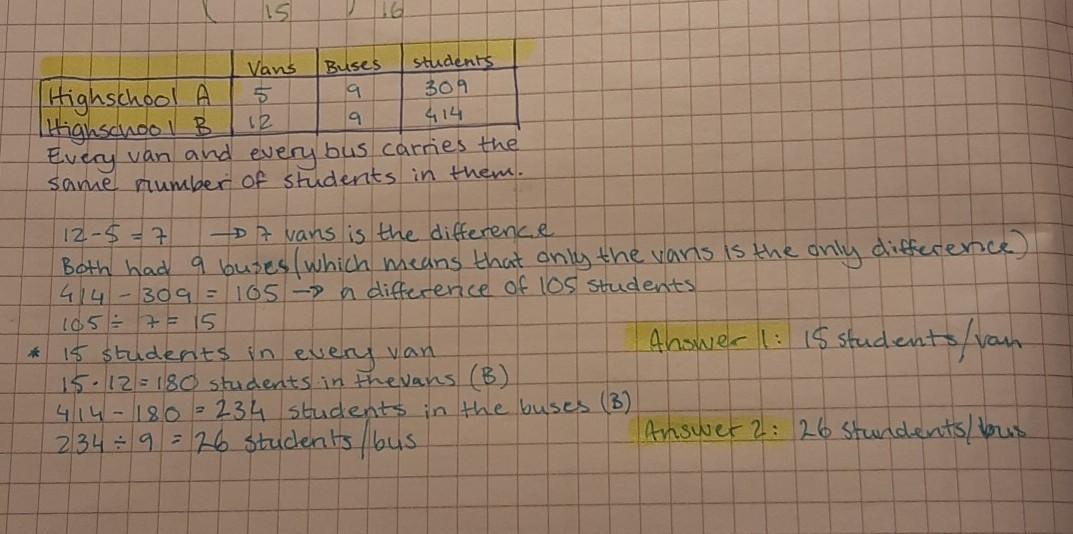 15 16
Vans Buses students
Highschool A 5 9 309
Highschool B 12 9 414
Every van and every bus carries the
same number of students in them.
12-5=7 → 7 vans is the difference
Both had 9 buses (which means that only the vans is the only difference)
414 - 309 = 105 → a difference of 105 students
105 ÷ 7 = 15
* 15 students in every van
Answer 1: 15 students/van
15·12=180 students in the vans (B)
414-180 = 234 students in the buses (B)
234 ÷ 9 = 26 students/bus
Answer 2: 26 stundents/bus